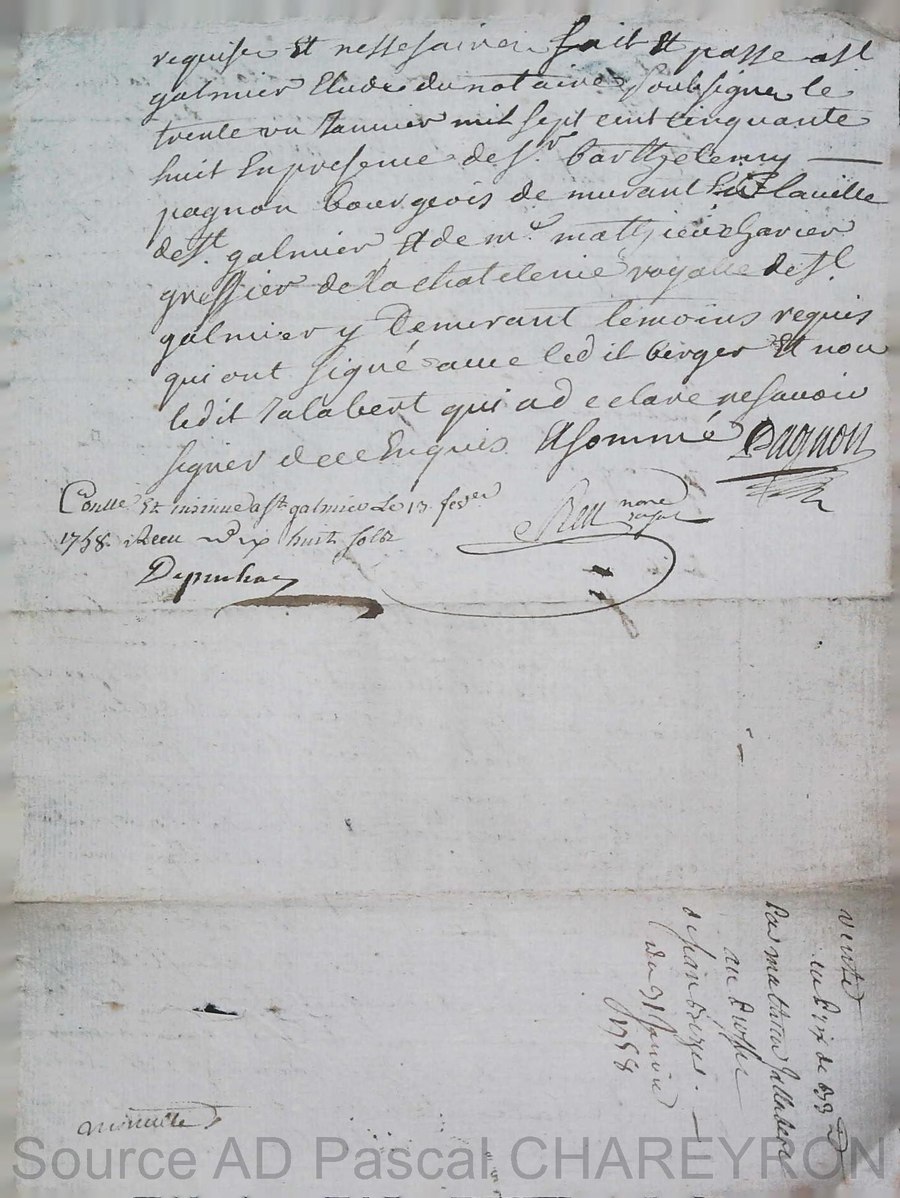 requises et nessesaires fait et passe a st
galmier Etude du notaire soubsigne le
trente un Janvier mil sept cent cinquante
huit En presence de sr. barthelemy
pagnon bourgeois de murant En la ville
de st galmier et de me mathieu charier
greffier de la chatelenie royalle de st
galmier y Demurant temoins requis
qui ont signé avec ledit berger Et non
ledit Jalabert qui a declare ne savoir
signer de ce Enquis et sommé Pagnon
Conllé Et insinué a st galmier Le 13 fevrier
1758. Receu dix huit solds
note
royal
vente
au prix de
par mathieu Jallabert
au proffit
de jean berger
du 31 janvier
1758
minutte
Source AD Pascal CHAREYRON